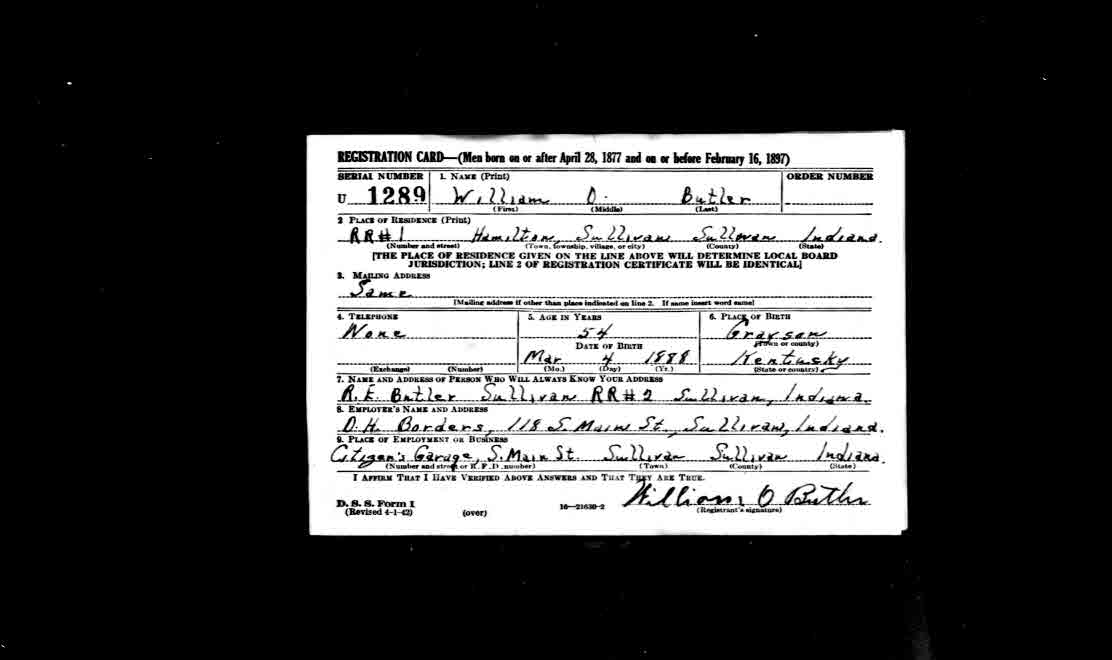 REGISTRATION CARD—(Men born on or after April 28, 1877 and on or before February 16, 1897)
SERIAL NUMBER 1. NAME (Print) ORDER NUMBER
U 1289 William O. Butler
(First) (Middle) (Last)
2 PLACE OF RESIDENCE (Print)
RR#1 Hamilton, Sullivan Sullivan Indiana.
(Number and street) (Town, township, village, or city) (County) (State)
[THE PLACE OF RESIDENCE GIVEN ON THE LINE ABOVE WILL DETERMINE LOCAL BOARD
JURISDICTION; LINE 2 OF REGISTRATION CERTIFICATE WILL BE IDENTICAL]
3. MAILING ADDRESS
Same
[Mailing address if other than place indicated on line 2. If same insert word same]
4. TELEPHONE 5. AGE IN YEARS 6. PLACE OF BIRTH
None 54 Grayson
DATE OF BIRTH (Town or county)
Mar 4 1888 Kentusky
(Exchange) (Number) (Mo.) (Day) (Yr.) (State or country)
7. NAME AND ADDRESS OF PERSON WHO WILL ALWAYS KNOW YOUR ADDRESS
R.E. Butler Sullivan RR#2 Sullivan, Indiana.
8. EMPLOYER'S NAME AND ADDRESS
D.H. Borders, 118 S. Main St., Sullivan, Indiana.
9. PLACE OF EMPLOYMENT OR BUSINESS
Citizen's Garage, S. Main St. Sullivan Sullivan Indiana
(Number and street or R. F. D. number) (Town) (County) (State)
I AFFIRM THAT I HAVE VERIFIED ABOVE ANSWERS AND THAT THEY ARE TRUE.
William O Butler
D. S. S. Form 1
(Revised 4-1-42) (over) 16—21630-2 (Registrant's signature)